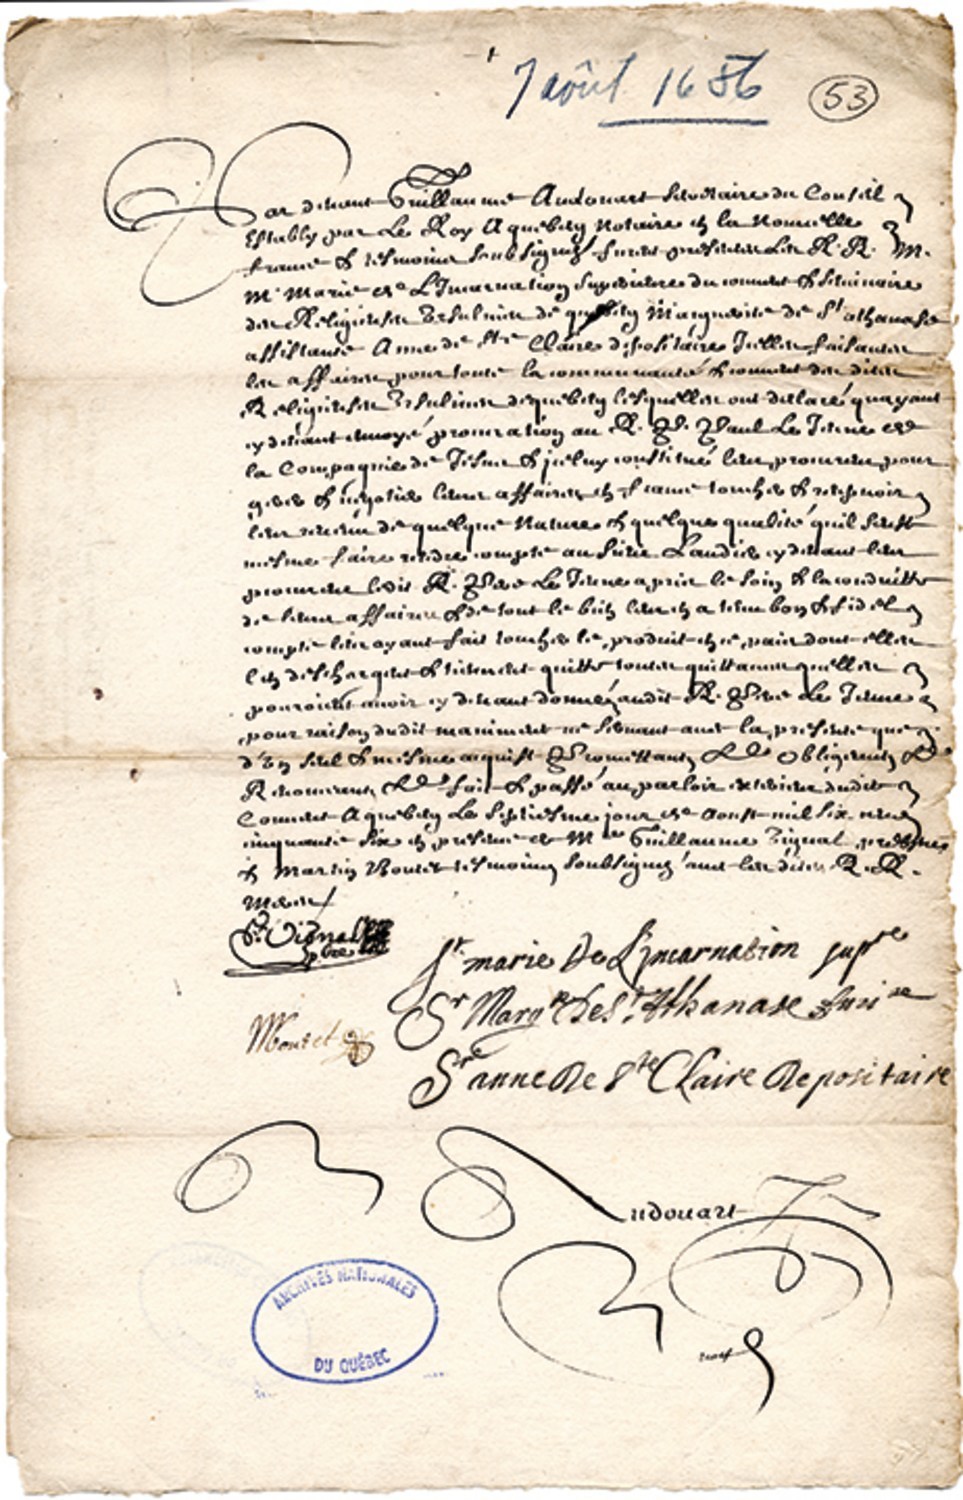 7 août 1656
53
Par devant Guillaume Audouart Secretaire du Conseil
Estably par Le Roy A quebecq Notaire en la Nouvelle
france & tesmoins soubsignez furent presentes Les R. R. M.
Mr Marie de L'Incarnation superieure du convent & seminaire
des Religieuses Ursulines de quebecq Marguerite de St athanase
assistante Anne de Ste Claire depositaire Icelles faisantes
les affaires pour toute la communauté & convent des dites
Religieuses Ursulines de quebecq lesquelles ont declaré quayant
cy devant envoyé procuration au R. P. Paul Le Jeune de
la Compagnie de Jesus & jceluy constitué leur procureur pour
gerer & negotier leurs affaires en france toucher & recepvoir
leur revenu de quelque nature & quelque qualité quil soit
mesme faire rendre compte au Sieur Laudier cy devant leur
procureur ledit R. Pere Le Jeune a pris le soin & la conduitte
de leurs affaires & de tout le bien leur en a tenu bon & fidel
compte leur ayant fait toucher le produit en ce pais dont elles
len deschargent & tiennent quitte toutes quittances quelles
pouroient avoir cy devant donné audit R. Pere Le Jeune
pour raison dudit maniment ne servant avec la presente que
d'un seul & mesme acquist Promettans &c Obligeants &c
Renonceants &c fait & passé au parloir exterieur dudit
Convent A quebecq Le septiesme jour de Aoust mil six cens
cinquante six en presence de Mre Guillaume Vignal prebstre
& Martin Boutet tesmoins soubsignez avec les dites R. R.
Meres
G. Vignal
pbre
Sr marie De L'Incarnation supre
Sr Margte De St Athanase
Boutet
Sre anne De Ste Claire Depositaire
Audouart
nore
ARCHIVES NATIONALES
DU QUÉBEC